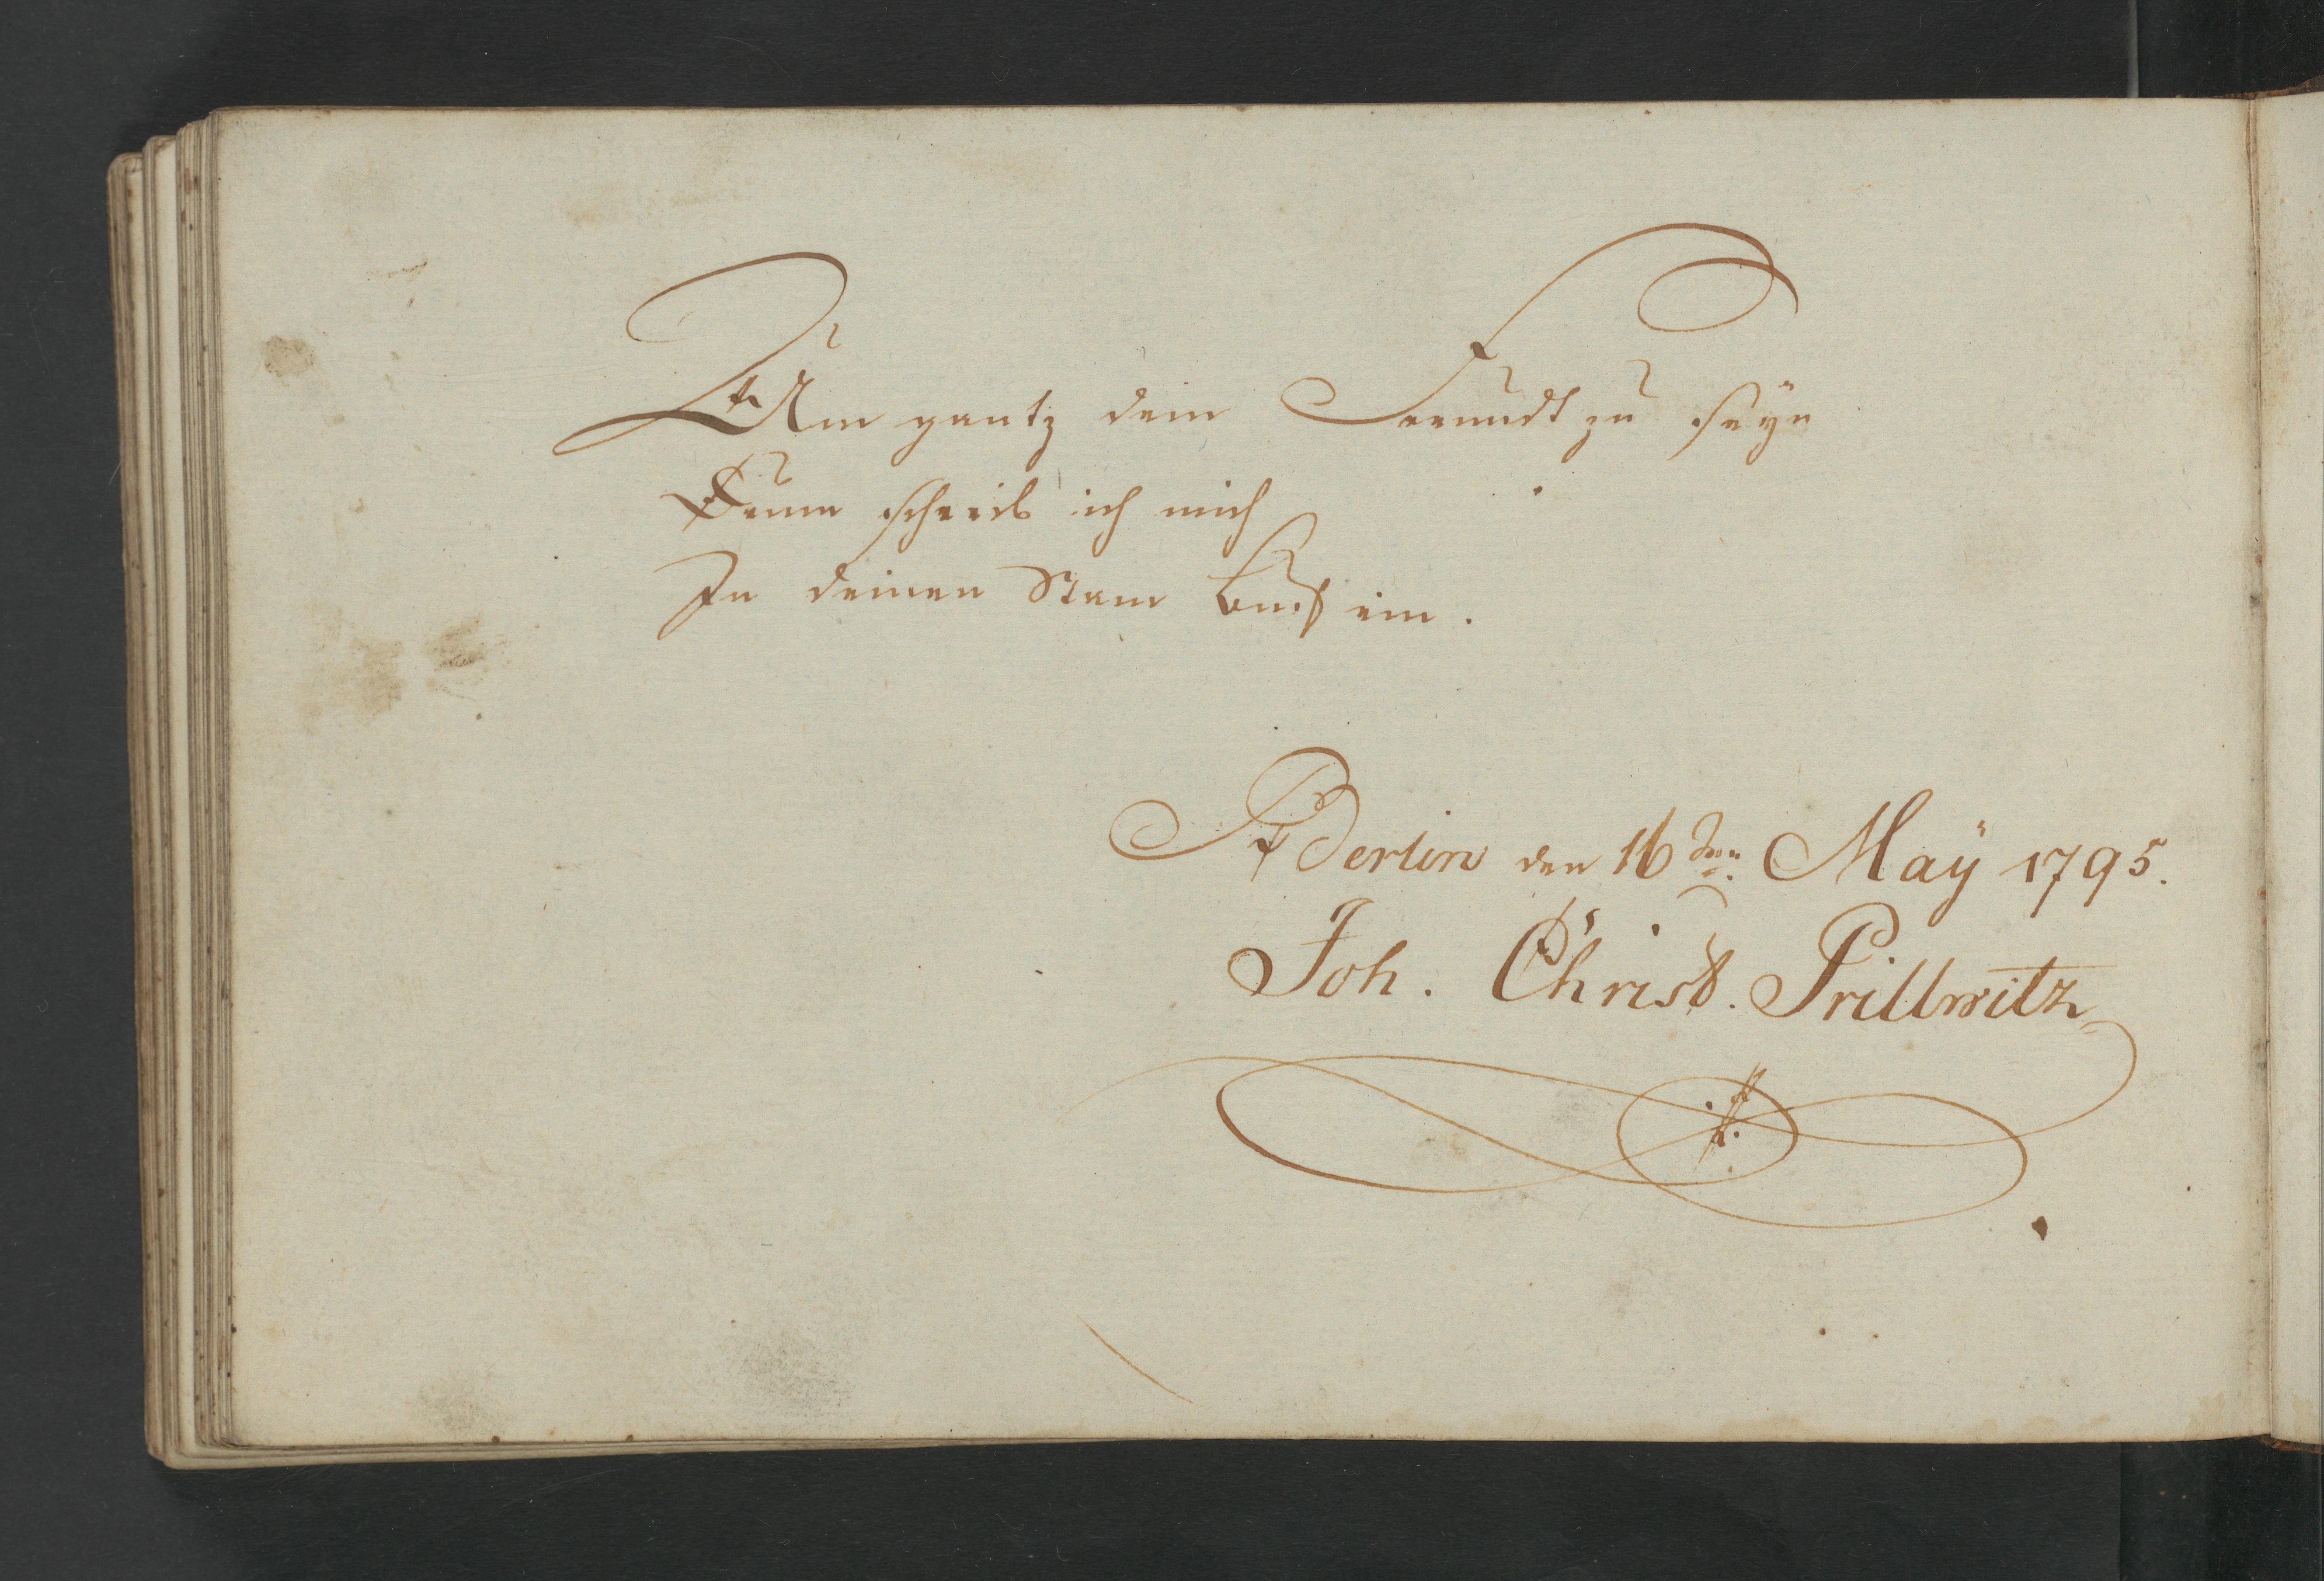 Um gantz dein Freundt zu seÿn
Drum schreib ich mich
In deinen Stam Buch ein.
Berlin den 16ten Maÿ 1795.
Joh. Christ. Prillwitz